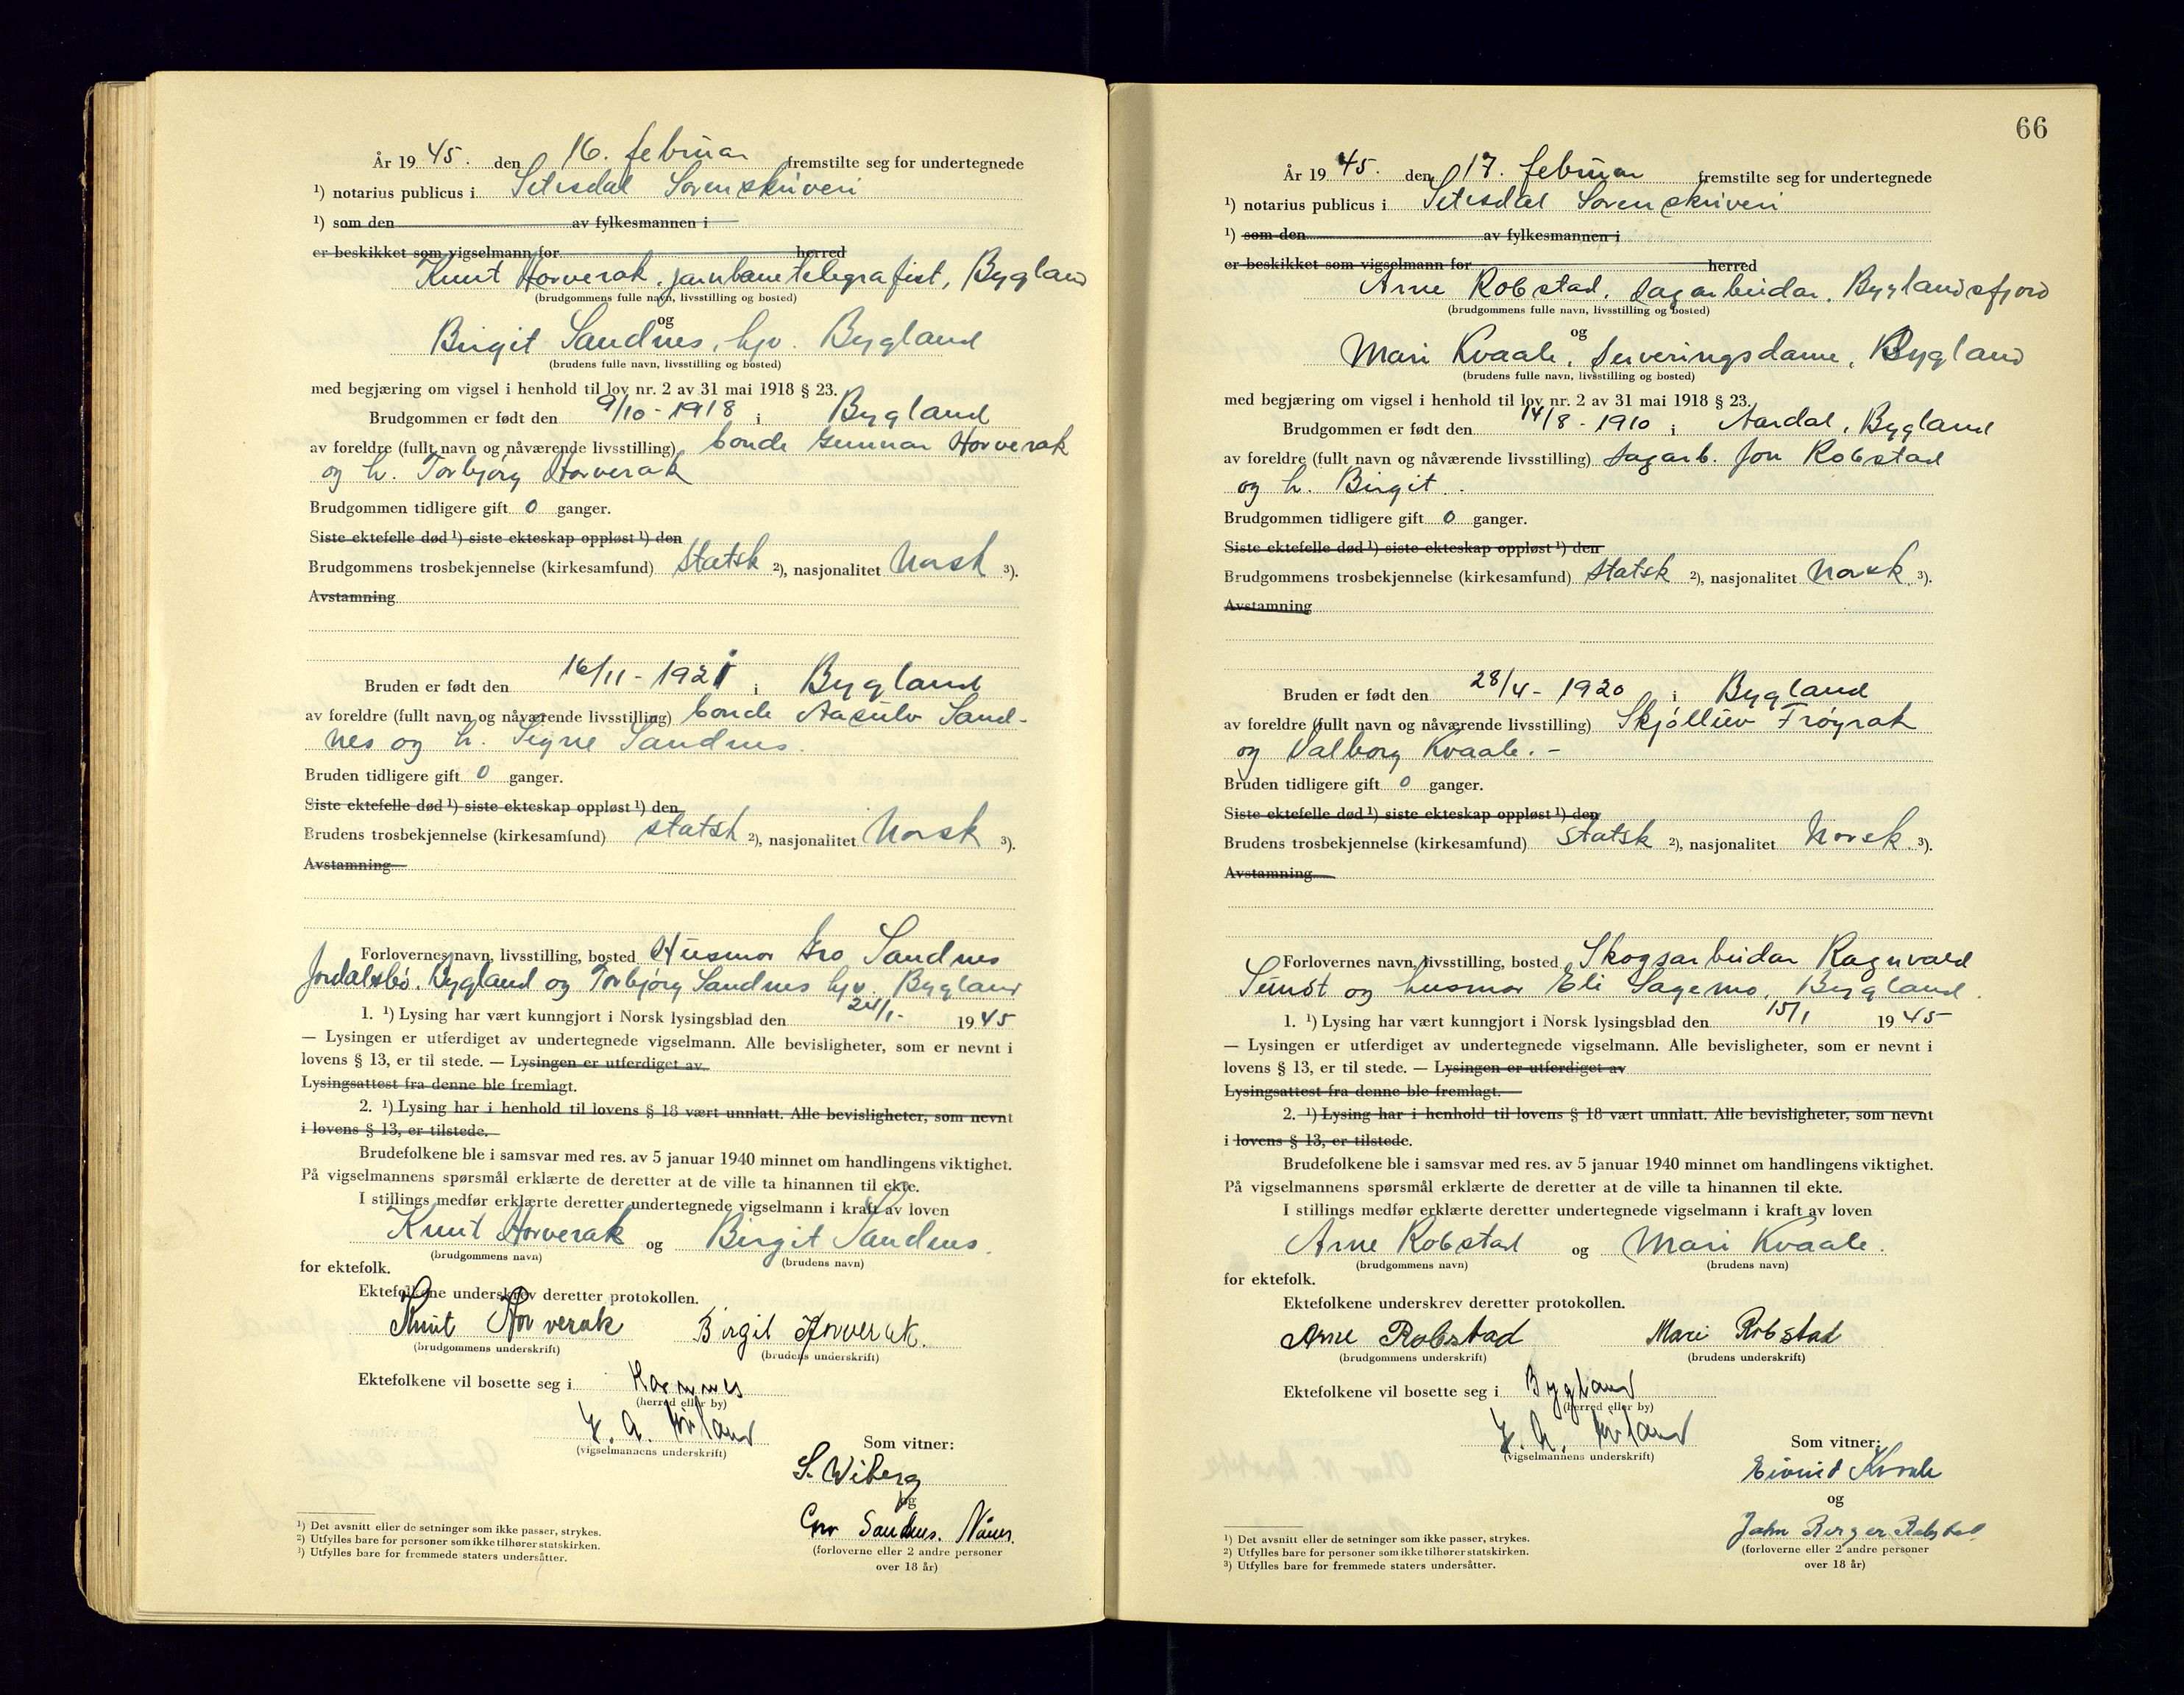 År 19 45. den 16. februar fremstilte seg for undertegnede
¹) notarius publicus i Setesdal Sorenskriveri
¹) som den av fylkesmannen i
er beskikket som vigselmann for herred
Knut Horverak, jarnbanetelegrafist, Bygland
(brudgommens fulle navn, livsstilling og bosted)
og
Birgit Sandnes, hjv. Bygland
(brudens fulle navn, livsstilling og bosted)
med begjæring om vigsel i henhold til lov nr. 2 av 31 mai 1918 § 23.
Brudgommen er født den 9/10 - 1918 i Bygland
av foreldre (fullt navn og nåværende livsstilling) bonde Gunnar Horverak
og h. Torbjørg Horverak
Brudgommen tidligere gift 0 ganger.
Siste ektefelle død ¹) siste ekteskap oppløst ¹) den
Brudgommens trosbekjennelse (kirkesamfund) statsk ²), nasjonalitet Norsk ³).
Avstamning
Bruden er født den 16/11 - 1921 i Bygland
av foreldre (fullt navn og nåværende livsstilling) bonde Aasulv Sand-
nes og h. Signe Sandnes.
Bruden tidligere gift 0 ganger.
Siste ektefelle død ¹) siste ekteskap oppløst ¹) den
Brudens trosbekjennelse (kirkesamfund) statsk ²), nasjonalitet Norsk ³).
Avstamning
Forlovernes navn, livsstilling, bosted Husmor Gro Sandnes
Jordalsbø, Bygland og Torbjørg Sandnes hjv. Bygland
1. ¹) Lysing har vært kunngjort i Norsk lysingsblad den 24/1- 19 45
— Lysingen er utferdiget av undertegnede vigselmann. Alle bevisligheter, som er nevnt i
lovens § 13, er til stede. — Lysingen er utferdiget av
Lysingsattest fra denne ble fremlagt.
2. ¹) Lysing har i henhold til lovens § 18 vært unnlatt. Alle bevisligheter, som nevnt
i lovens § 13, er tilstede.
Brudefolkene ble i samsvar med res. av 5 januar 1940 minnet om handlingens viktighet.
På vigselmannens spørsmål erklærte de deretter at de ville ta hinannen til ekte.
I stillings medfør erklærte deretter undertegnede vigselmann i kraft av loven
Knut Horverak og Birgit Sandnes.
(brudgommens navn) (brudens navn)
for ektefolk.
Ektefolkene underskrev deretter protokollen.
Knut Horverak Birgit Horverak.
(brudgommens underskrift) (brudens underskrift)
Ektefolkene vil bosette seg i Hornnes
(herred eller by)
(vigselmannens underskrift)
Som vitner:
S. Wiberg
og
Gro Sandnes.
(forloverne eller 2 andre personer
over 18 år)
¹) Det avsnitt eller de setninger som ikke passer, strykes.
²) Utfylles bare for personer som ikke tilhører statskirken.
³) Utfylles bare for fremmede staters undersåtter.
66
År 19 45. den 17. februar fremstilte seg for undertegnede
¹) notarius publicus i Setesdal Sorenskriveri
¹) som den av fylkesmannen i
er beskikket som vigselmann for herred
Arne Robstad, sagarbeidar, Byglandsfjord
(brudgommens fulle navn, livsstilling og bosted)
og
Mari Kvaale, serveringsdame, Bygland
(brudens fulle navn, livsstilling og bosted)
med begjæring om vigsel i henhold til lov nr. 2 av 31 mai 1918 § 23.
Brudgommen er født den 14/8 - 1910 i Aardal, Bygland
av foreldre (fullt navn og nåværende livsstilling) sagarb. Jon Robstad
og h. Birgit.
Brudgommen tidligere gift 0 ganger.
Siste ektefelle død ¹) siste ekteskap oppløst ¹) den
Brudgommens trosbekjennelse (kirkesamfund) statsk ²), nasjonalitet Norsk ³).
Avstamning
Bruden er født den 28/4 - 1920 i Bygland
av foreldre (fullt navn og nåværende livsstilling) Skjølluv Frøyrak
og Valborg Kvaale. -
Bruden tidligere gift 0 ganger.
Siste ektefelle død ¹) siste ekteskap oppløst ¹) den
Brudens trosbekjennelse (kirkesamfund) statsk ²), nasjonalitet Norsk. ³).
Avstamning
Forlovernes navn, livsstilling, bosted Skogsarbeidar Ragnvald
Sundt og husmor Eli Sagemo, Bygland.
1. ¹) Lysing har vært kunngjort i Norsk lysingsblad den 15/1 19 45
— Lysingen er utferdiget av undertegnede vigselmann. Alle bevisligheter, som er nevnt i
lovens § 13, er til stede. — Lysingen er utferdiget av
Lysingsattest fra denne ble fremlagt.
2. ¹) Lysing har i henhold til lovens § 18 vært unnlatt. Alle bevisligheter, som nevnt
i lovens § 13, er tilstede.
Brudefolkene ble i samsvar med res. av 5 januar 1940 minnet om handlingens viktighet.
På vigselmannens spørsmål erklærte de deretter at de ville ta hinannen til ekte.
I stillings medfør erklærte deretter undertegnede vigselmann i kraft av loven
Arne Robstad og Mari Kvaale.
(brudgommens navn) (brudens navn)
for ektefolk.
Ektefolkene underskrev deretter protokollen.
Arne Robstad Mari Robstad
(brudgommens underskrift) (brudens underskrift)
Ektefolkene vil bosette seg i Bygland
(herred eller by)
(vigselmannens underskrift)
Som vitner:
Eivind Kvaale
og
John Birger Robstad
(forloverne eller 2 andre personer
over 18 år)
¹) Det avsnitt eller de setninger som ikke passer, strykes.
²) Utfylles bare for personer som ikke tilhører statskirken.
³) Utfylles bare for fremmede staters undersåtter.